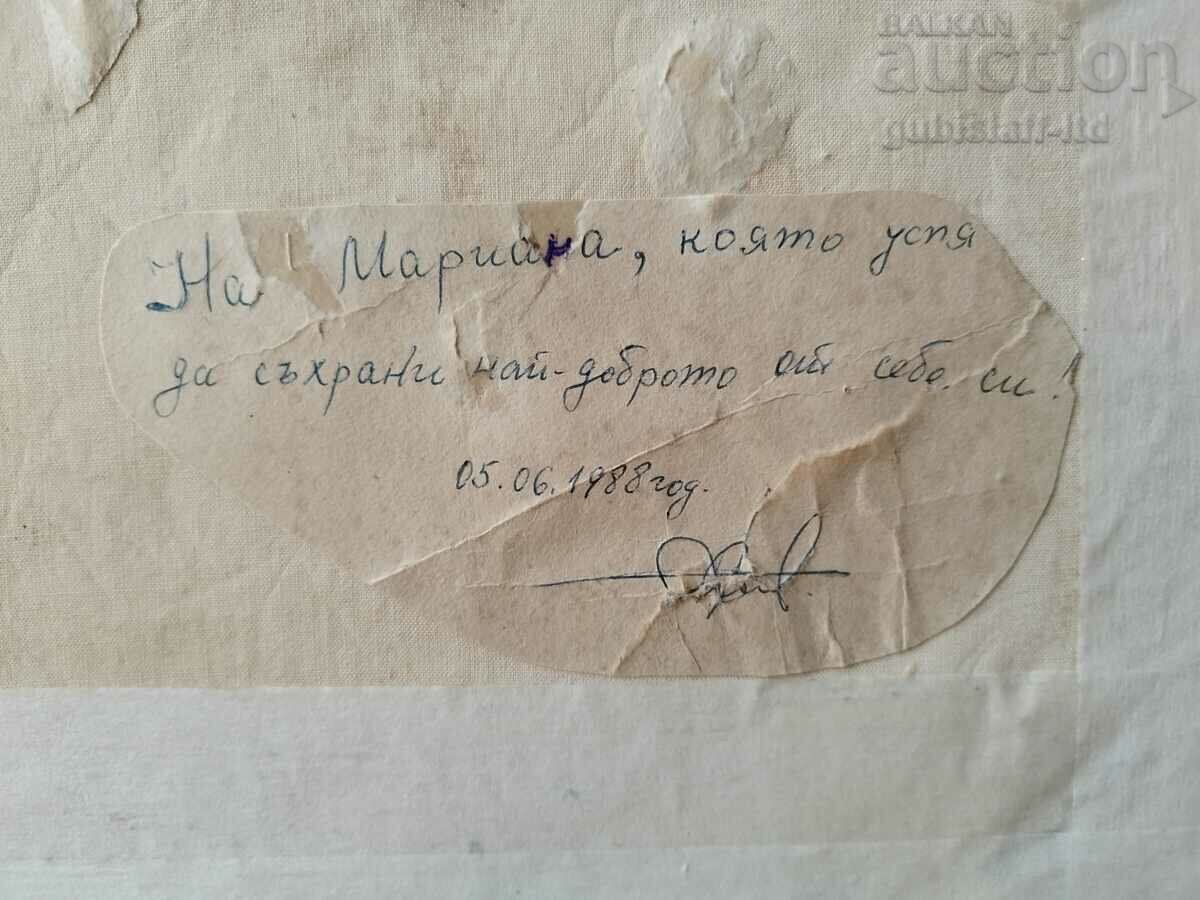 BALKAN
auction
gubislaff-ltd
На Мариана, която успя
да съхрани най-доброто от себе си!
05.06.1988 год.